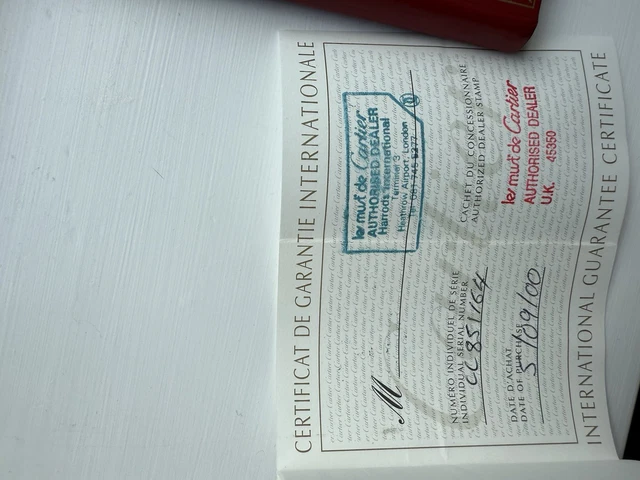 CERTIFICAT DE GARANTIE INTERNATIONALE
les must de Cartier
AUTHORISED DEALER
Harrods International
Terminal 3
Heathrow Airport, London
Tel: 081 745 5377
M
NUMÉRO INDIVIDUEL DE SÉRIE
INDIVIDUAL SERIAL NUMBER
CC 851164
CACHET DU CONCESSIONNAIRE
AUTHORIZED DEALER STAMP
DATE D'ACHAT
DATE OF PURCHASE
5/09/00
les must de Cartier
AUTHORISED DEALER
U.K. 45350
INTERNATIONAL GUARANTEE CERTIFICATE